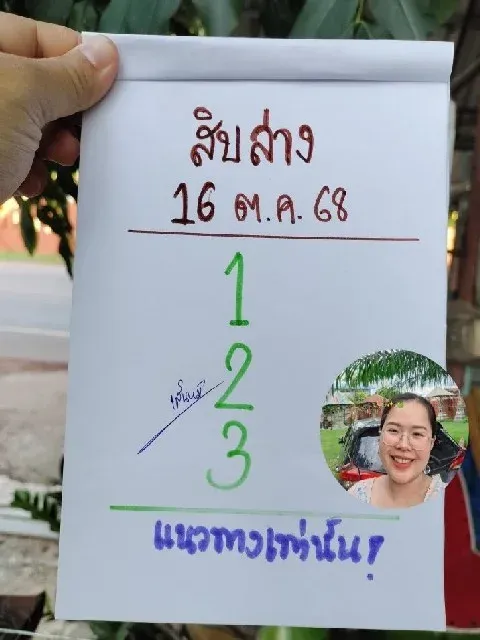 สิบล่าง
16 ต.ค. 68
1
2
3
แนวทางเท่านั้น!